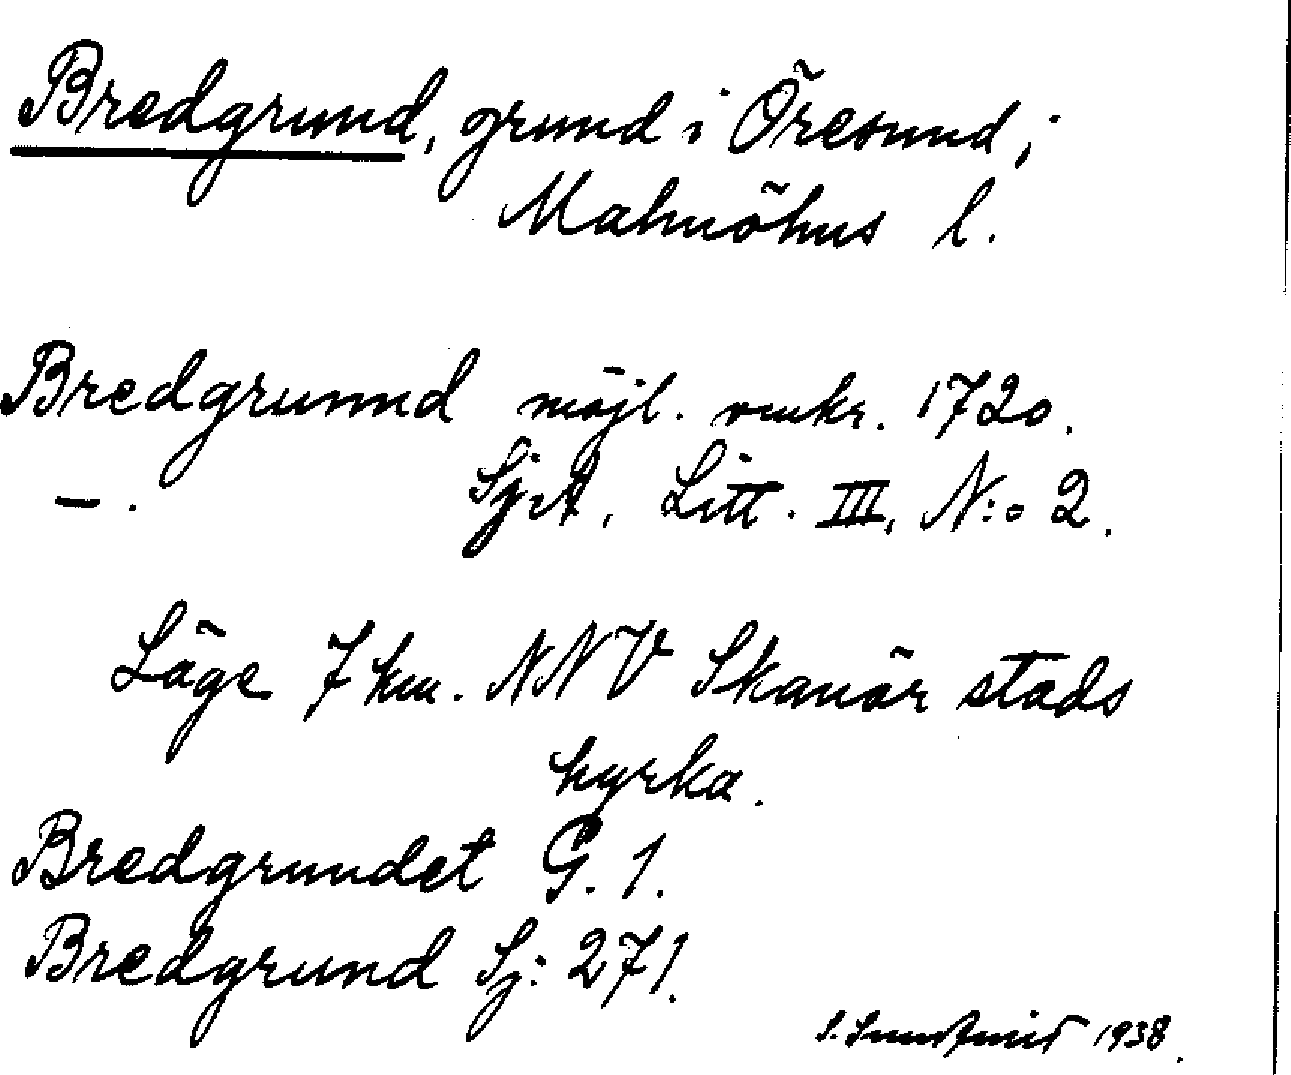 Bredgrund, grund i Öresund;
Malmöhus l.
Bredgrunnd möjl. omkr. 1720.
—. SjA, Litt. III, N:o 2.
Läge 7 km. NNV Skanör stads
kyrka.
Bredgrundet G. 1.
Bredgrund Sj: 271.
1938.